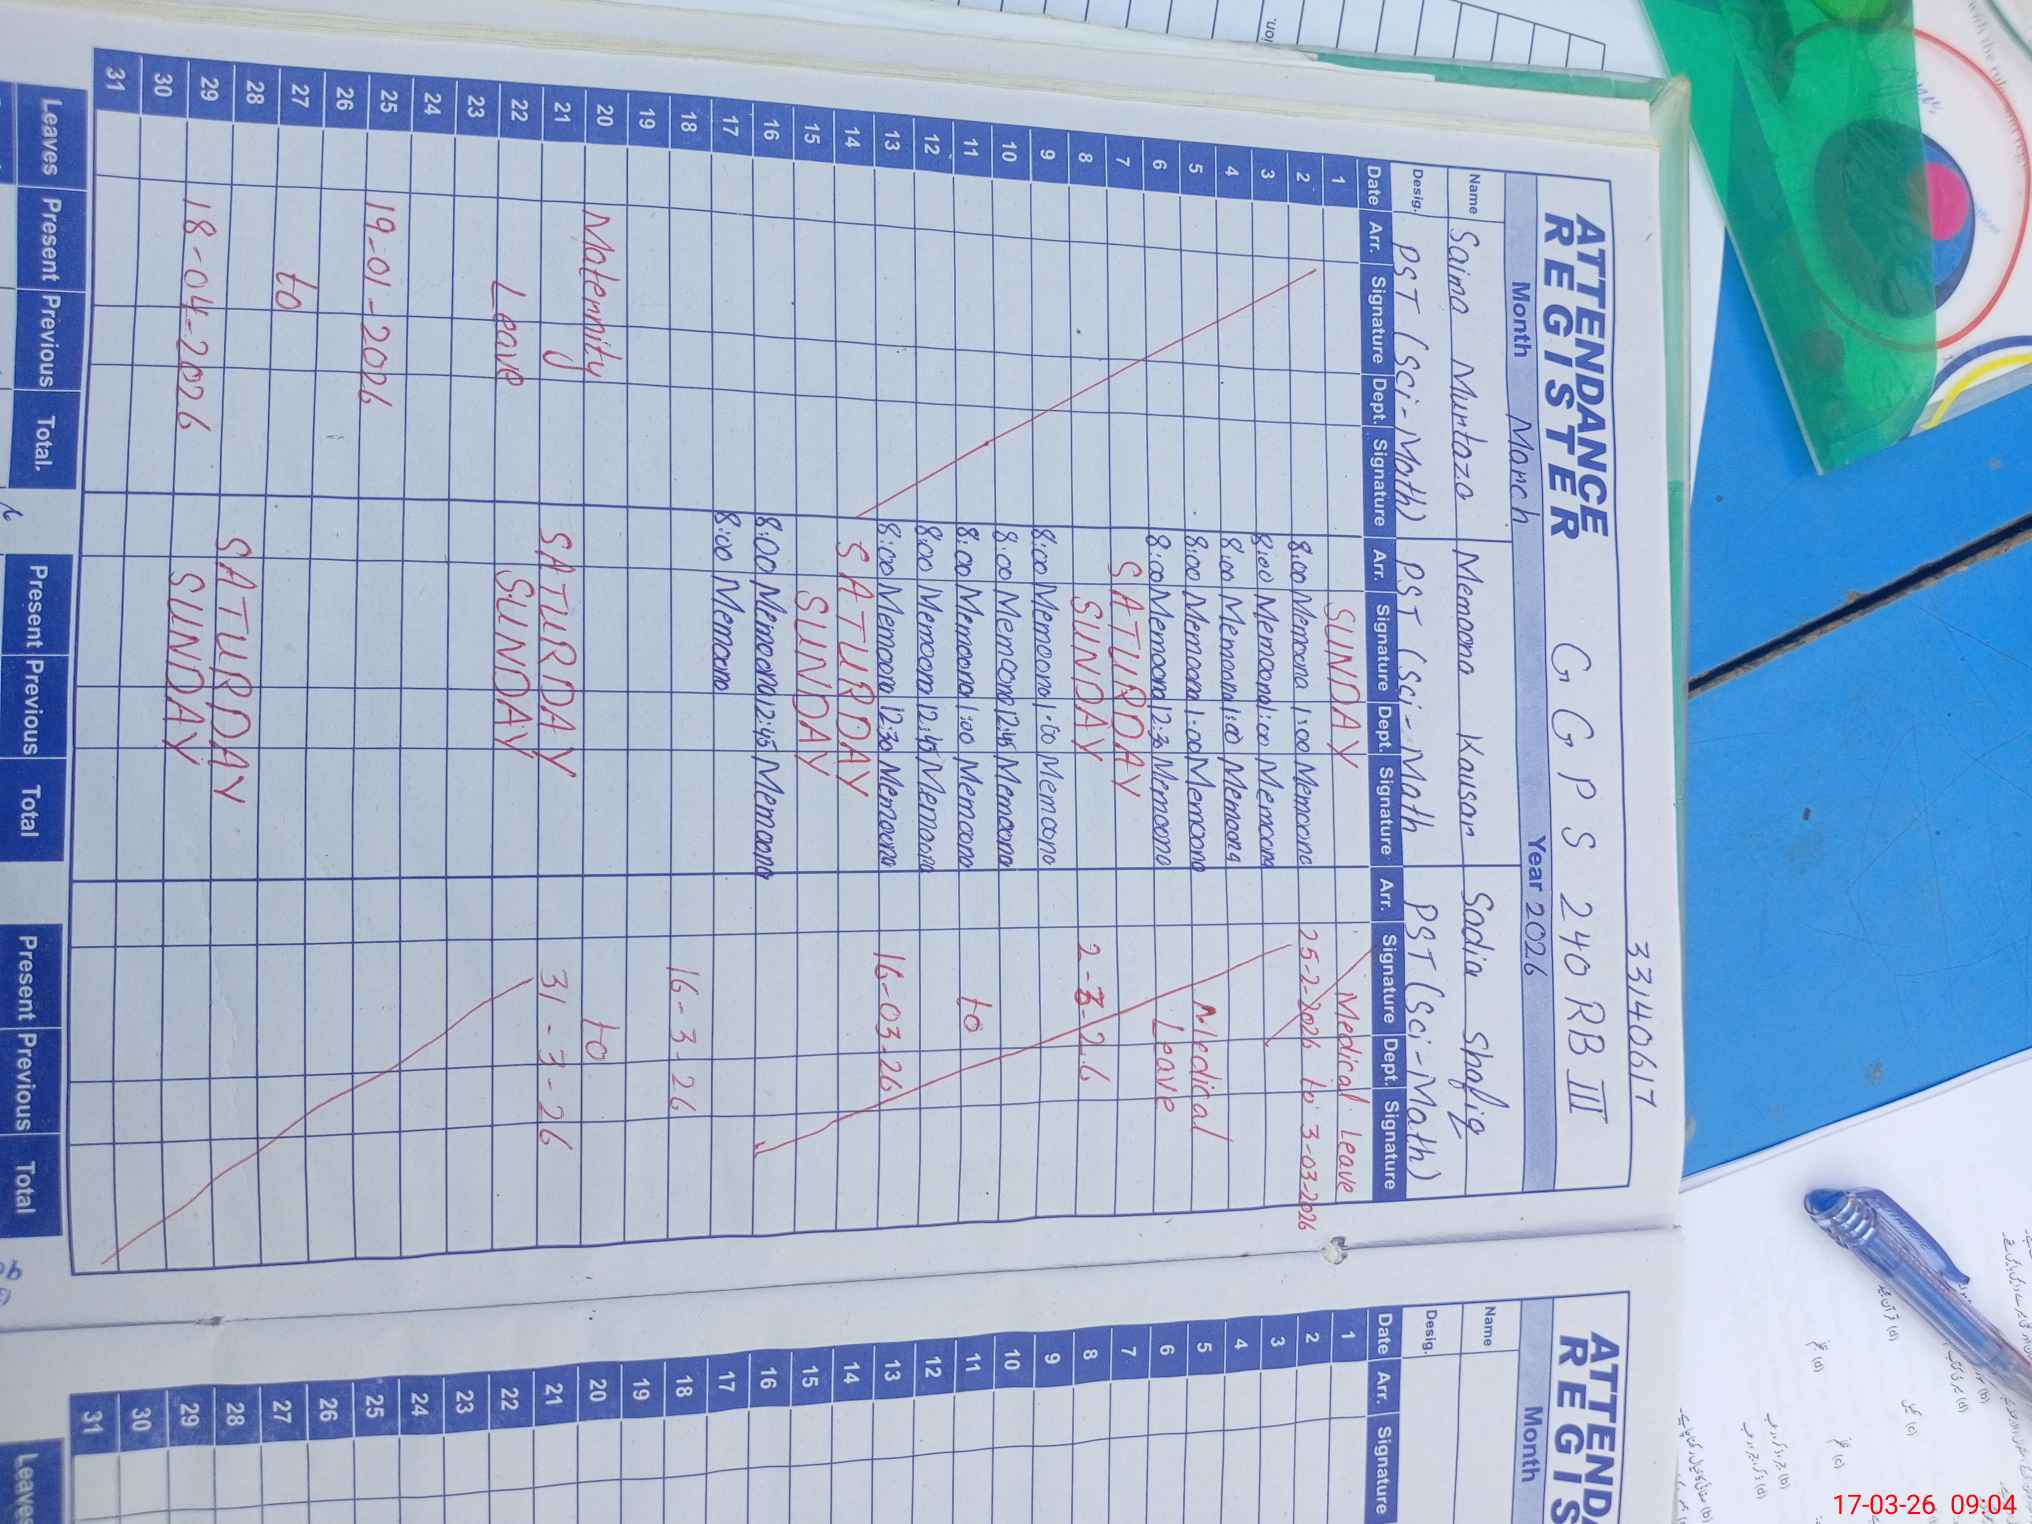 33140617
ATTENDANCE REGISTER G G P S 240 RB III
Month March Year 2026
Name Saima Mumtaz Memoona Kausar Sadia Shafiq
Desig. PST (Sci-Math) PST (Sci-Math PST (Sci-Math)
Date Arr. Signature Dept. Signature Arr. Signature Dept. Signature Arr. Signature Dept. Signature
1 SUNDAY Medical Leave
2 8:00 Memoona 1:00 Memoona 25-2-2026 to 3-03-2026
3 8:00 Memoona 1:00 Memoona
4 8:00 Memoona 1:00 Memoona
5 8:00 Memoona 1:00 Memoona Medical
6 8:00 Memoona 12:30 Memoona Leave
7 SATURDAY
8 SUNDAY 2-3-26
9 8:00 Memoona 1:00 Memoona
10 8:00 Memoona 12:45 Memoona
11 8:00 Memoona 1:00 Memoona to
12 8:00 Memoona 12:45 Memoona
13 8:00 Memoona 12:30 Memoona 16-03-26
14 SATURDAY
15 SUNDAY
16 8:00 Memoona 12:45 Memoona
17 8:00 Memoona
18 16-3-26
19
20 Maternity to
21 SATURDAY 31-3-26
22 Leave SUNDAY
23
24
25 19-01-2026
26
27 to
28 SATURDAY
29 18-04-2026 SUNDAY
30
31
Leaves Present Previous Total. Present Previous Total Present Previous Total
ATTENDA
REGIS
Month
Name
Desig.
Date Arr. Signature
1
2
3
4
5
6
7
8
9
10
11
12
13
14
15
16
17
18
19
20
21
22
23
24
25
26
27
28
29
30
31
Leaves
17-03-26 09:04